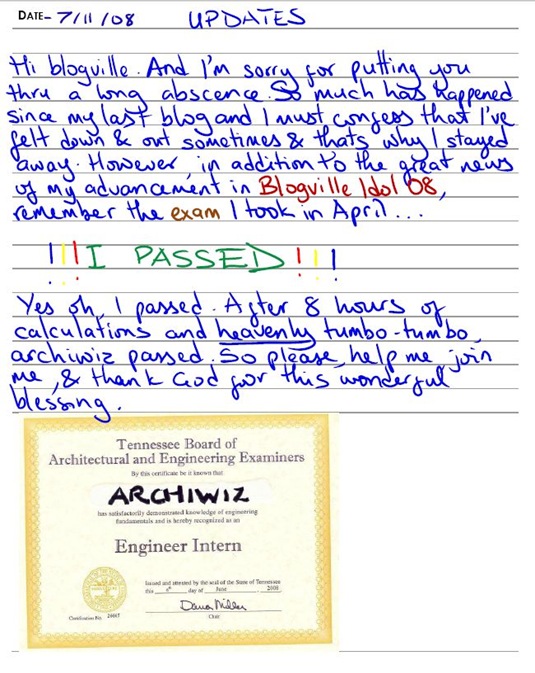 DATE- 7/11/08 UPDATES
Hi blogville. And I'm sorry for putting you
thru a long abscence. So much has happened
since my last blog and I must confess that I've
felt down & out sometimes & thats why I stayed
away. However, in addition to the great news
of my advancement in Blogville Idol 08,
remember the exam I took in April...
!!!I PASSED!!!
Yes oh, I passed. After 8 hours of
calculations and heavenly tumbo-tumbo,
archiwiz passed. So please, help me, join
me, & thank God for this wonderful
blessing.
Tennessee Board of
Architectural and Engineering Examiners
By this certificate be it known that
ARCHIWIZ
has satisfactorily demonstrated knowledge of engineering
fundamentals and is hereby recognized as an
Engineer Intern
Issued and attested by the seal of the State of Tennessee
this 6th day of June, 2008
Dana Miller
Chair
Certification No.